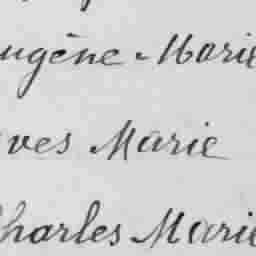 ugène Marie
ves Marie
Charles Marie